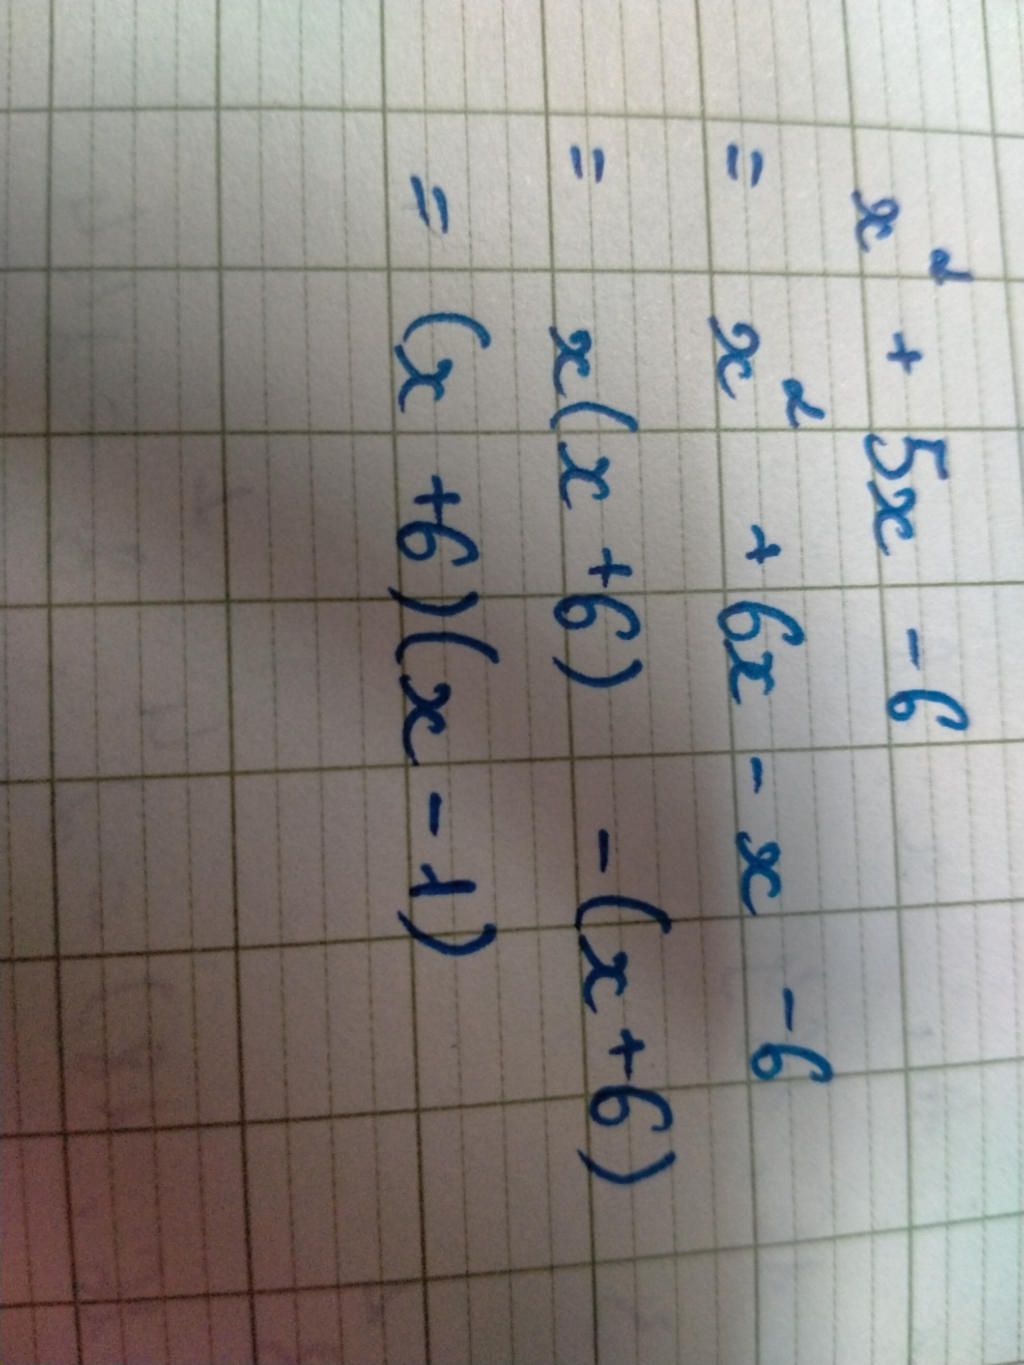 x² + 5x - 6
= x² + 6x - x - 6
= x(x + 6) - (x + 6)
= (x + 6)(x - 1)